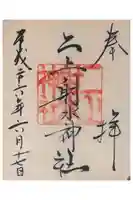 奉拝
二上射水神社
平成二十六年六月十七日